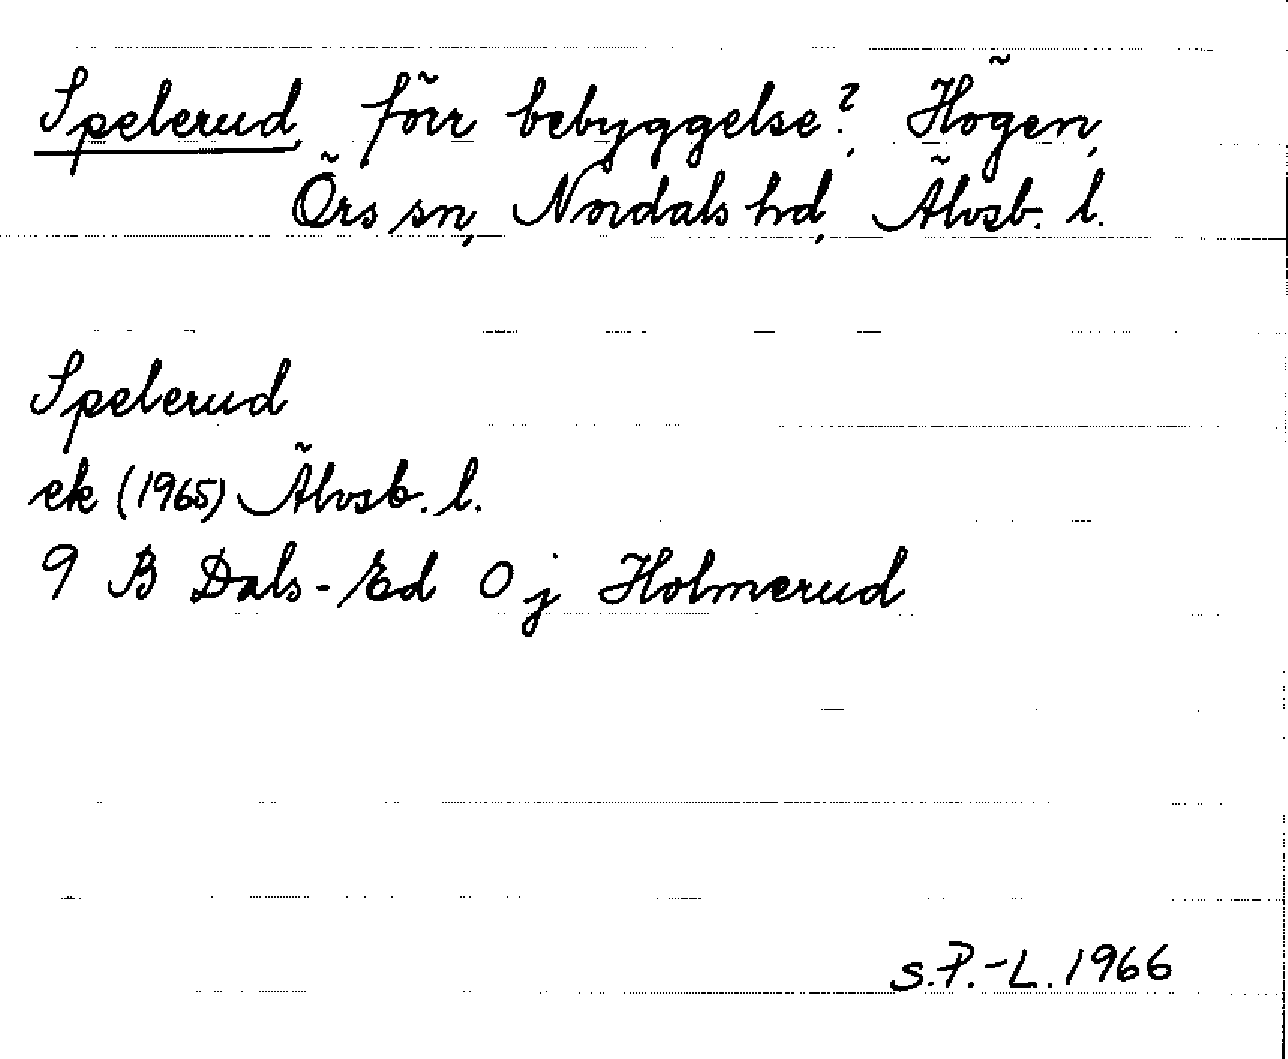 Spelerud, förr bebyggelse?, Högen,
Örs sn, Nordals hd, Älvsb. l.
Spelerud
ek (1965) Älvsb. l.
9 B Dals-Ed 0 j Holmerud
S.P.-L. 1966